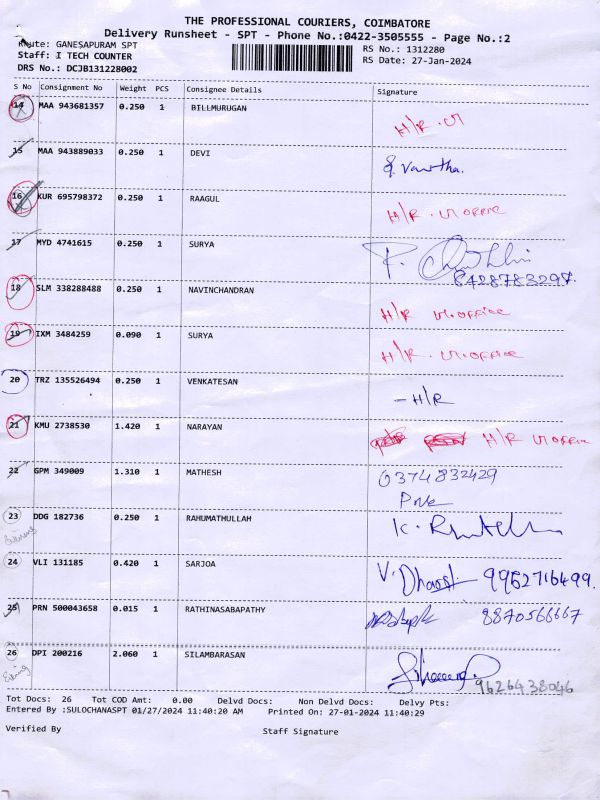 THE PROFESSIONAL COURIERS, COIMBATORE
Delivery Runsheet - SPT - Phone No.:0422-3505555 - Page No.:2
Route: GANESAPURAM SPT RS No.: 1312280
Staff: I TECH COUNTER RS Date: 27-Jan-2024
DRS No.: DCJB131228002
S No Consignment No Weight PCS Consignee Details Signature
14 MAA 943681357 0.250 1 BILLMURUGAN H/R
15 MAA 943889033 0.250 1 DEVI
16 KUR 695798372 0.250 1 RAAGUL H/R office
17 MYD 4741615 0.250 1 SURYA
8428783297.
18 SLM 338288488 0.250 1 NAVINCHANDRAN H/R office
19 IXM 3484259 0.090 1 SURYA H/R office
20 TRZ 135526494 0.250 1 VENKATESAN - H/R
21 KMU 2738530 1.420 1 NARAYAN H/R office
22 GPM 349009 1.310 1 MATHESH 0374832429
23 DDG 182736 0.250 1 RAHUMATHULLAH
Evening
24 VLI 131185 0.420 1 SARJOA 9952716499.
25 PRN 500043658 0.015 1 RATHINASABAPATHY 8870566667
26 DPI 200216 2.060 1 SILAMBARASAN
Evening 9626438046
Tot Docs: 26 Tot COD Amt: 0.00 Delvd Docs: Non Delvd Docs: Delvy Pts:
Entered By :SULOCHANASPT 01/27/2024 11:40:20 AM Printed On: 27-01-2024 11:40:29
Verified By Staff Signature